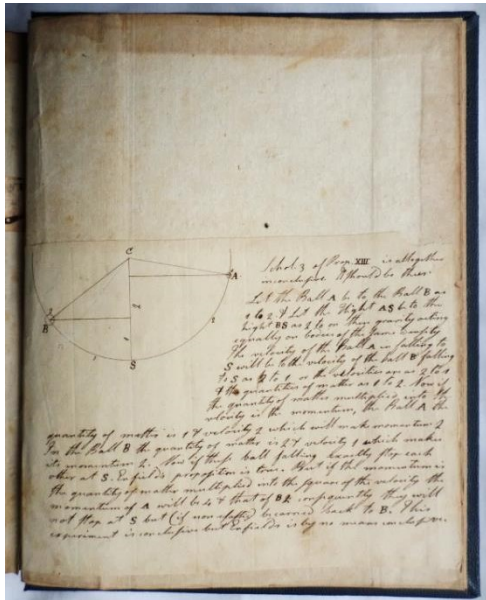 C
A
B
S
1
2
Schol. 3 of Prop. XIII is altogether
inconclusive It should be thus.
Let the Ball A be to the Ball B as
1 to 2. & Let the Hight AS be to the
hight BS as 2 to 1 then gravity acting
equally on bodies of the same
The velocity of the Ball A in falling to
S will be to the velocity of the ball B falling
to S as 2 to 1 or the velocities are as 2 to 1
& the quantities of matter as 1 to 2. Now if
the quantity of matter multiplied into the
velocity is the momentum, the Ball A the
quantity of matter is 1 & velocity 2 which will make momentum 2
In the Ball B the quantity of matter is 2 & velocity 1 which makes
its momentum 2. Now if these ball falling exactly stop each
other at S. Enfields proposition is true. But if the momentum is
the quantity of matter multiplied into the square of the velocity the
momentum of A will be 4 & that of B 2 consequently they will
not stop at S but (if non elastic) be carried back to B. This
experiment is conclusive but Enfields is by no means conclusive.